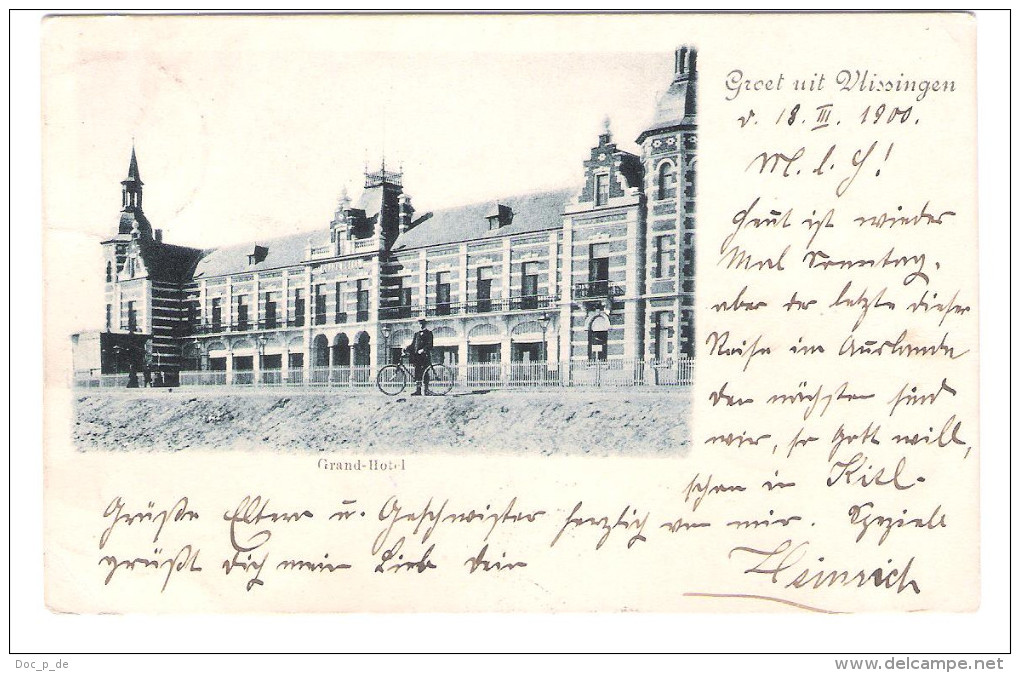 Groet uit Vlissingen
d. 18. III. 1900.
M. l. G!
Heut ist wieder
Mal Sonntag,
aber der letzte dieser
Reise im Auslande
den nächsten sind
wir, so Gott will,
schon in Kiel.
Grand-Hotel
Grüße Eltern u. Geschwister herzlich von mir. Speziell
grüßt Dich mein Lieb Dein
Heinrich
Doc_p_de
www.delcampe.net